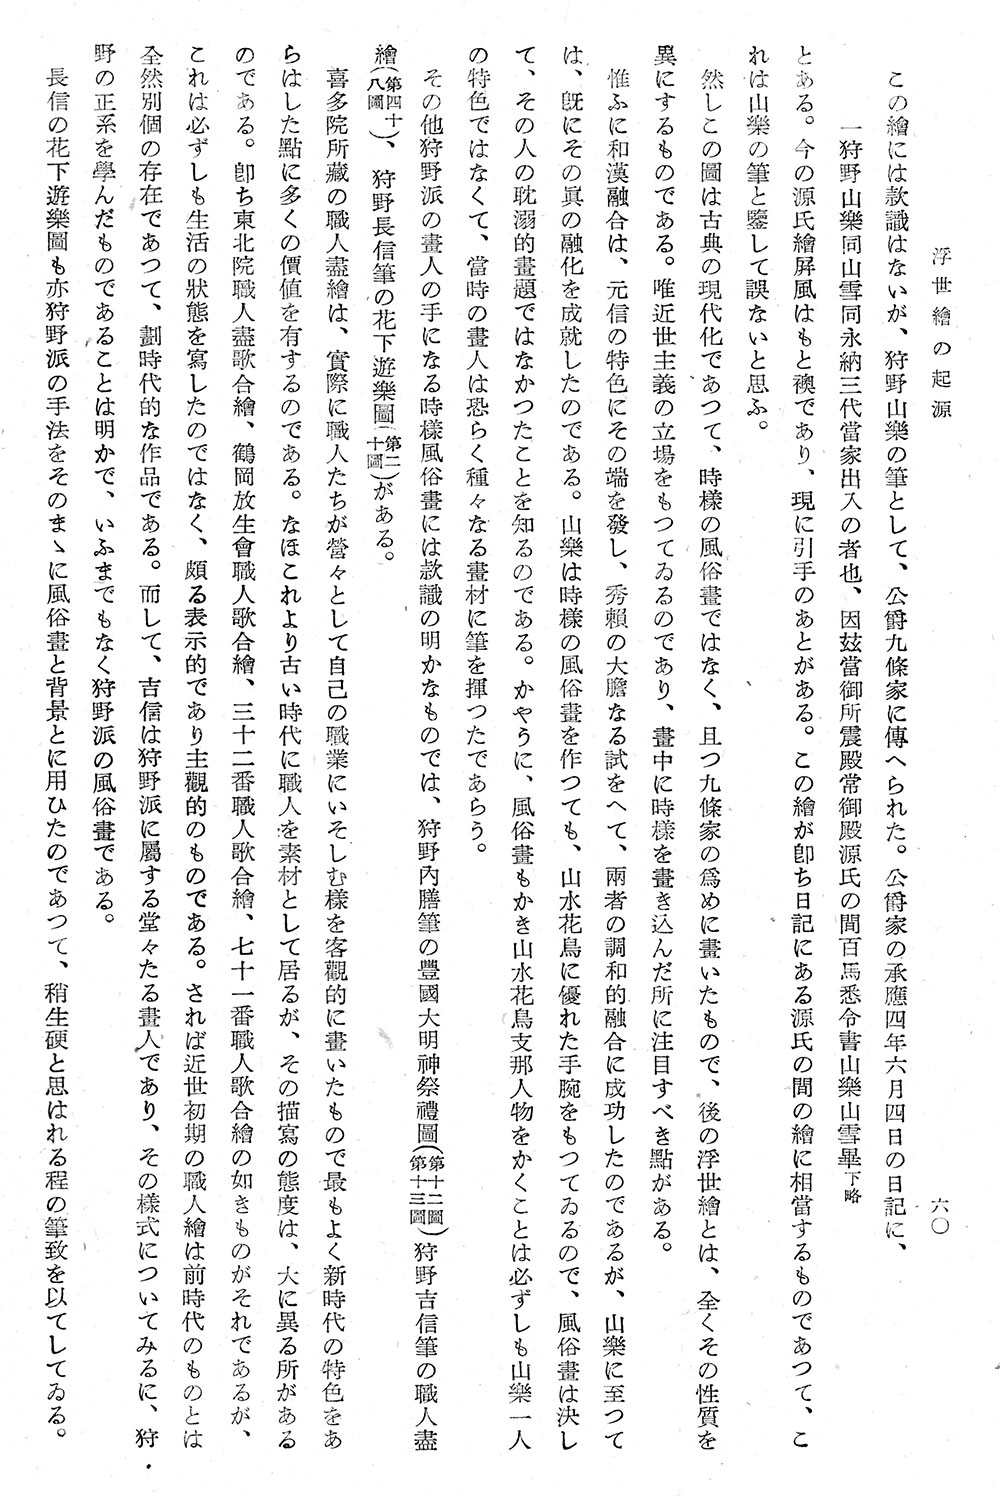 浮世繪の起源
六〇
この繪には款識はないが、狩野山樂の筆として、公爵九條家に傳へられた。公爵家の承應四年六月四日の日記に、
一狩野山樂同山雪同永納三代當家出入の者也、因玆當御所震殿常御殿源氏の間百馬悉令書山樂山雪畢下略
とある。今の源氏繪屏風はもと襖であり、現に引手のあとがある。この繪が卽ち日記にある源氏の間の繪に相當するものであつて、こ
れは山樂の筆と鑒して誤ないと思ふ。
然しこの圖は古典の現代化であつて、時樣の風俗畫ではなく、且つ九條家の爲めに畫いたもので、後の浮世繪とは、全くその性質を
異にするものである。唯近世主義の立場をもつてゐるのであり、畫中に時樣を畫き込んだ所に注目すべき點がある。
惟ふに和漢融合は、元信の特色にその端を發し、秀賴の大膽なる試をへて、兩者の調和的融合に成功したのであるが、山樂に至つて
は、旣にその眞の融化を成就したのである。山樂は時樣の風俗畫を作つても、山水花鳥に優れた手腕をもつてゐるので、風俗畫は決し
て、その人の耽溺的畫題ではなかつたことを知るのである。かやうに、風俗畫もかき山水花鳥支那人物をかくことは必ずしも山樂一人
の特色ではなくて、當時の畫人は恐らく種々なる畫材に筆を揮つたであらう。
その他狩野派の畫人の手になる時樣風俗畫には款識の明かなものでは、狩野內膳筆の豐國大明神祭禮圖(第十二圖第十三圖)狩野吉信筆の職人盡
繪(第四十八圖)、狩野長信筆の花下遊樂圖(第二十圖)がある。
喜多院所藏の職人盡繪は、實際に職人たちが營々として自己の職業にいそしむ樣を客觀的に畫いたもので最もよく新時代の特色をあ
らはした點に多くの價値を有するのである。なほこれより古い時代に職人を素材として居るが、その描寫の態度は、大に異る所がある
のである。卽ち東北院職人盡歌合繪、鶴岡放生會職人歌合繪、三十二番職人歌合繪、七十一番職人歌合繪の如きものがそれであるが、
これは必ずしも生活の狀態を寫したのではなく、頗る表示的であり主觀的のものである。されば近世初期の職人繪は前時代のものとは
全然別個の存在であつて、劃時代的な作品である。而して、吉信は狩野派に屬する堂々たる畫人であり、その樣式についてみるに、狩
野の正系を學んだものであることは明かで、いふまでもなく狩野派の風俗畫である。
長信の花下遊樂圖も亦狩野派の手法をそのまゝに風俗畫と背景とに用ひたのであつて、稍生硬と思はれる程の筆致を以てしてゐる。